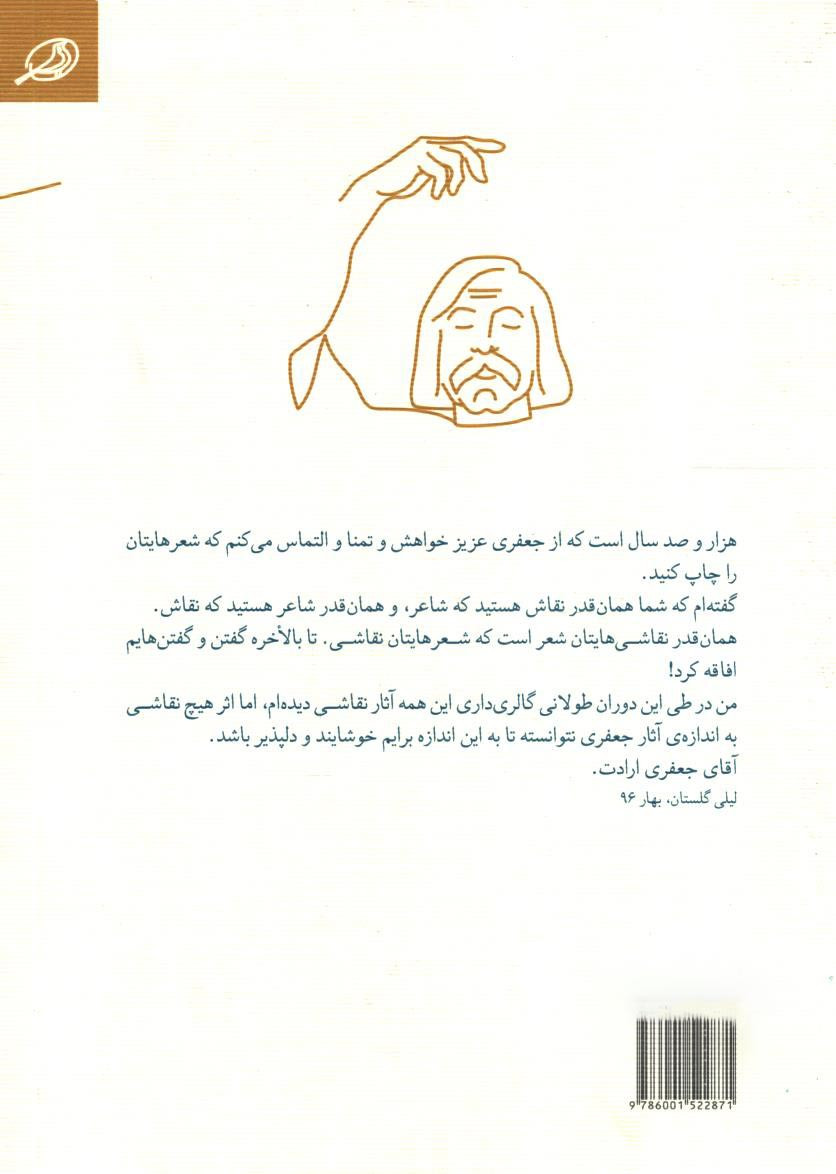 هزار و صد سال است که از جعفری عزیز خواهش و تمنا و التماس می‌کنم که شعرهایتان
را چاپ کنید.
گفته‌ام که شما همان‌قدر نقاش هستید که شاعر، و همان‌قدر شاعر هستید که نقاش.
همان‌قدر نقاشی‌هایتان شعر است که شعرهایتان نقاشی. تا بالأخره گفتن و گفتن‌هایم
افاقه کرد!
من در طی این دوران طولانی گالری‌داری این همه آثار نقاشی دیده‌ام، اما اثر هیچ نقاشی
به اندازه‌ی آثار جعفری نتوانسته تا به این اندازه برایم خوشایند و دلپذیر باشد.
آقای جعفری ارادت.
لیلی گلستان، بهار ۹۶
9 786001 522871